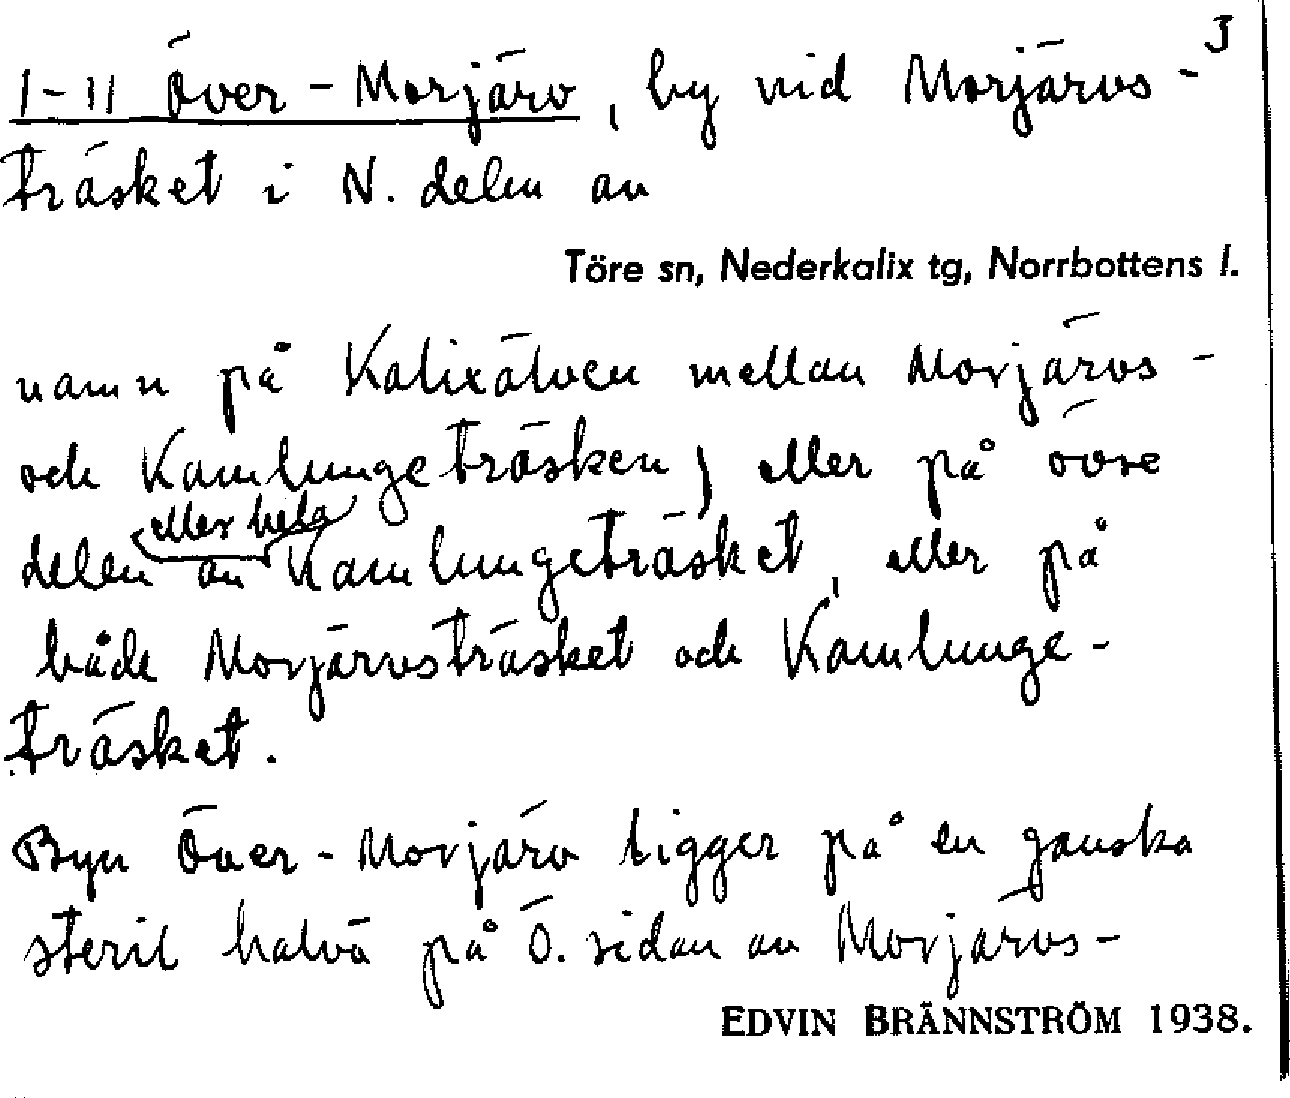 3
1-11 Över-Morjärv, by vid Morjärvs-
träsket i N. delen av
Töre sn, Nederkalix tg, Norrbottens l.
namn på Kalixälven mellan Morjärvs-
och Kamlungeträsken) eller på övre
eller hela
delen av Kamlungeträsket, eller på
både Morjärvsträsket och Kamlunge-
träsket.
Byn Över-Morjärv ligger på en ganska
steril halvö på Ö. sidan av Morjärvs-
EDVIN BRÄNNSTRÖM 1938.